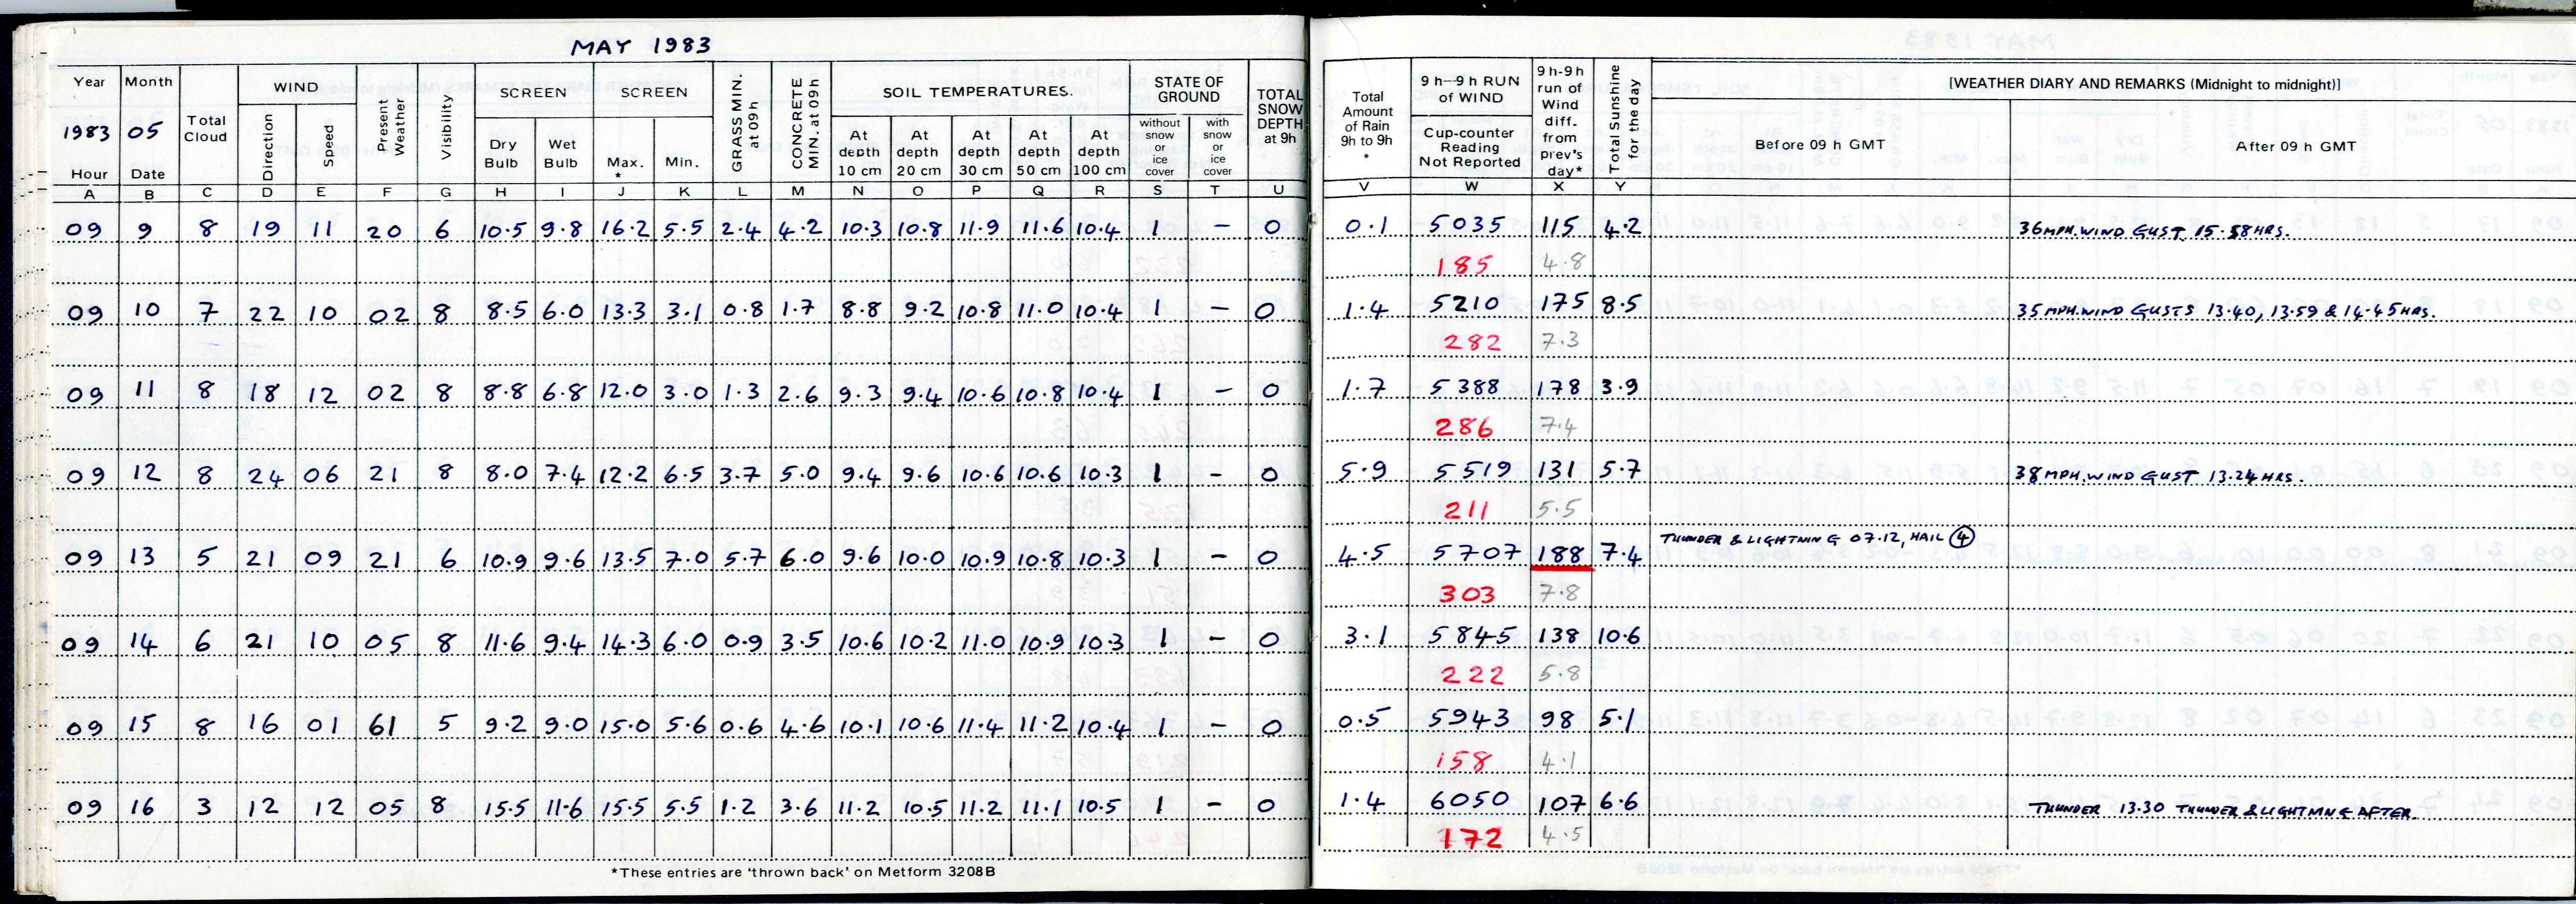 MAY 1983
Year Month WIND SCREEN SCREEN SOIL TEMPERATURES. STATE OF GROUND
1983 05 Total Cloud Direction Speed Present Weather Visibility Dry Bulb Wet Bulb Max. * Min. GRASS MIN. at 09h CONCRETE MIN. at 09h At depth 10 cm At depth 20 cm At depth 30 cm At depth 50 cm At depth 100 cm without snow or ice cover with snow or ice cover TOTAL SNOW DEPTH at 9h
Hour Date
A B C D E F G H I J K L M N O P Q R S T U
09 9 8 19 11 20 6 10.5 9.8 16.2 5.5 2.4 4.2 10.3 10.8 11.9 11.6 10.4 1 – 0
09 10 7 22 10 02 8 8.5 6.0 13.3 3.1 0.8 1.7 8.8 9.2 10.8 11.0 10.4 1 – 0
09 11 8 18 12 02 8 8.8 6.8 12.0 3.0 1.3 2.6 9.3 9.4 10.6 10.8 10.4 1 – 0
09 12 8 24 06 21 8 8.0 7.4 12.2 6.5 3.7 5.0 9.4 9.6 10.6 10.6 10.3 1 – 0
09 13 5 21 09 21 6 10.9 9.6 13.5 7.0 5.7 6.0 9.6 10.0 10.9 10.8 10.3 1 – 0
09 14 6 21 10 05 8 11.6 9.4 14.3 6.0 0.9 3.5 10.6 10.2 11.0 10.9 10.3 1 – 0
09 15 8 16 01 61 5 9.2 9.0 15.0 5.6 0.6 4.6 10.1 10.6 11.4 11.2 10.4 1 – 0
09 16 3 12 12 05 8 15.5 11.6 15.5 5.5 1.2 3.6 11.2 10.5 11.2 11.1 10.5 1 – 0
*These entries are 'thrown back' on Metform 3208B
Total Amount of Rain 9h to 9h * 9 h–9 h RUN of WIND Cup-counter Reading Not Reported 9 h-9 h run of Wind diff. from prev's day* Total Sunshine for the day [WEATHER DIARY AND REMARKS (Midnight to midnight)]
Before 09 h GMT After 09 h GMT
V W X Y
0.1 5035 115 4.2 36 MPH. WIND GUST 15.58 HRS.
185 4.8
1.4 5210 175 8.5 35 MPH. WIND GUSTS 13.40, 13.59 & 14.45 HRS.
282 7.3
1.7 5388 178 3.9
286 7.4
5.9 5519 131 5.7 38 MPH. WIND GUST 13.24 HRS.
211 5.5
4.5 5707 188 7.4 THUNDER & LIGHTNING 07.12, HAIL 4
303 7.8
3.1 5845 138 10.6
222 5.8
0.5 5943 98 5.1
158 4.1
1.4 6050 107 6.6 THUNDER 13.30 THUNDER & LIGHTNING AFTER
172 4.5